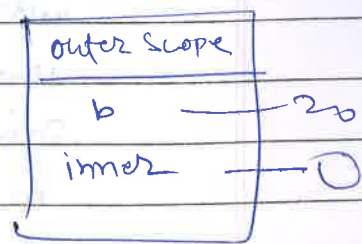 outer scope
b — 20
inner —